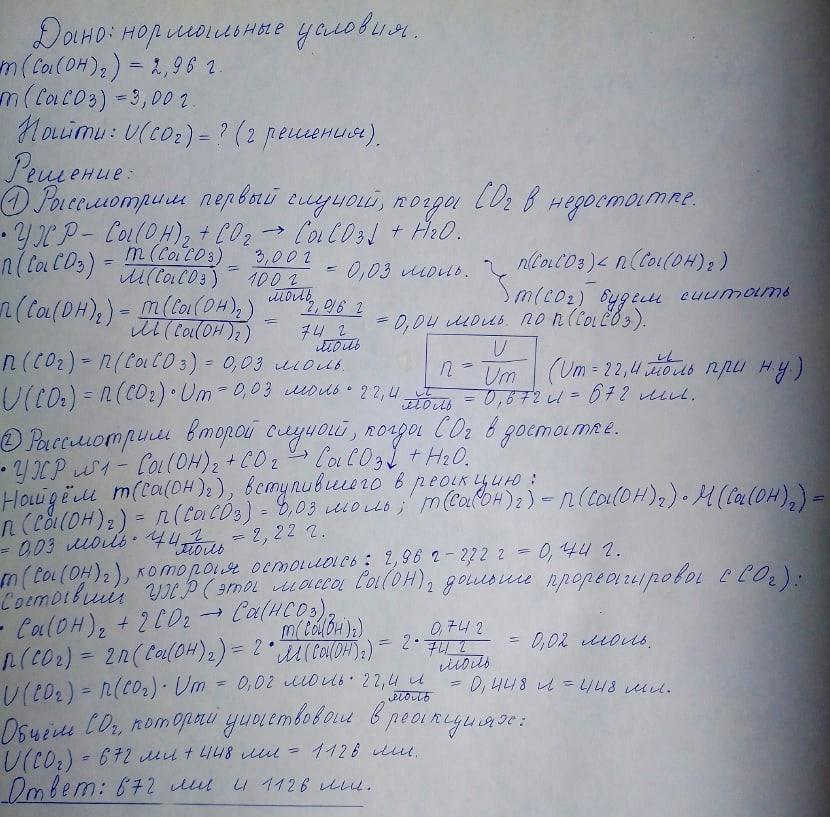 Дано: нормальные условия.
m(Ca(OH)₂) = 2,96 г.
m(CaCO3) = 3,00 г.
Найти: V(CO₂) = ? (2 решения).
Решение:
① Рассмотрим первый случай, когда CO₂ в недостатке.
• УХР – Ca(OH)₂ + CO₂ → CaCO3↓ + H₂O.
n(CaCO3) = m(CaCO3)/M(CaCO3) = 3,00 г/100 г/моль = 0,03 моль. } n(CaCO3) < n(Ca(OH)₂)
n(Ca(OH)₂) = m(Ca(OH)₂)/M(Ca(OH)₂) = 2,96 г/74 г/моль = 0,04 моль. m(CO₂) будем считать по n(CaCO3).
n(CO₂) = n(CaCO3) = 0,03 моль. n = V/Vm (Vm = 22,4 л/моль при н.у.)
V(CO₂) = n(CO₂) • Vm = 0,03 моль • 22,4 л/моль = 0,672 л = 672 мл.
② Рассмотрим второй случай, когда CO₂ в достатке.
• УХР №1 – Ca(OH)₂ + CO₂ → CaCO3↓ + H₂O.
Найдём m(Ca(OH)₂), вступившего в реакцию:
n(Ca(OH)₂) = n(CaCO3) = 0,03 моль; m(Ca(OH)₂) = n(Ca(OH)₂) • M(Ca(OH)₂) =
= 0,03 моль • 74 г/моль = 2,22 г.
m(Ca(OH)₂), которая осталась: 2,96 г – 2,22 г = 0,74 г.
Составим УХР (эта масса Ca(OH)₂ дальше прореагировала с CO₂):
• Ca(OH)₂ + 2CO₂ → Ca(HCO3)₂
n(CO₂) = 2n(Ca(OH)₂) = 2 • m(Ca(OH)₂)/M(Ca(OH)₂) = 2 • 0,74 г/74 г/моль = 0,02 моль.
V(CO₂) = n(CO₂) • Vm = 0,02 моль • 22,4 л/моль = 0,448 л = 448 мл.
Объём CO₂, который участвовал в реакциях:
V(CO₂) = 672 мл + 448 мл = 1126 мл.
Ответ: 672 мл и 1126 мл.